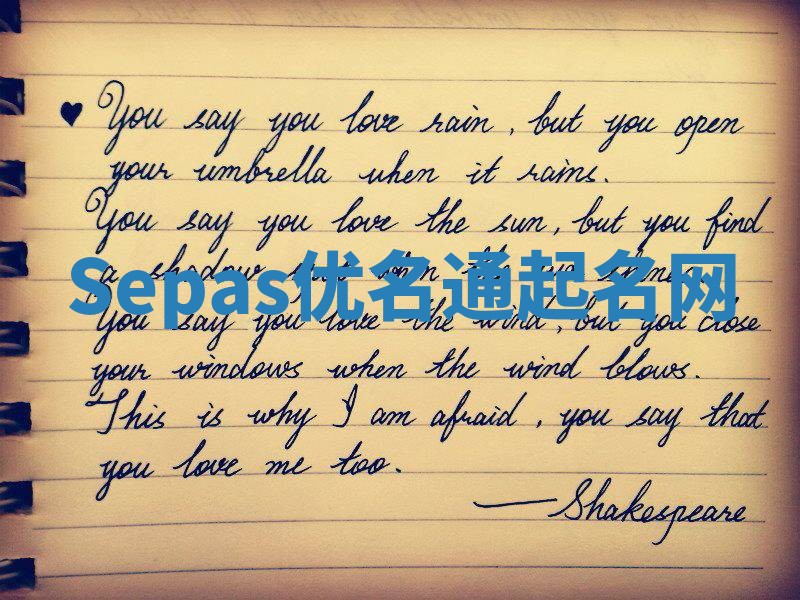 ♥ You say you love rain, but you open
your umbrella when it rains.
You say you love the sun, but you find
a shadow spot when the sun shines.
Sepas优名通起名网
You say you love the wind, but you close
your windows when the wind blows.
This is why I am afraid, you say that
you love me too.
—Shakespeare